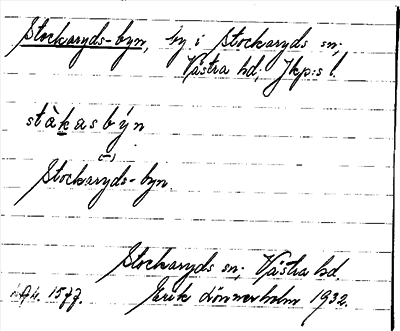 Stockaryds-byn, by i Stockaryds sn;
Västra hd; Jkp:s l.
stàkasbýn
Stockaryds-byn.
Stockaryds sn; Västra hd.
1577. Erik Lönnerholm 1932.